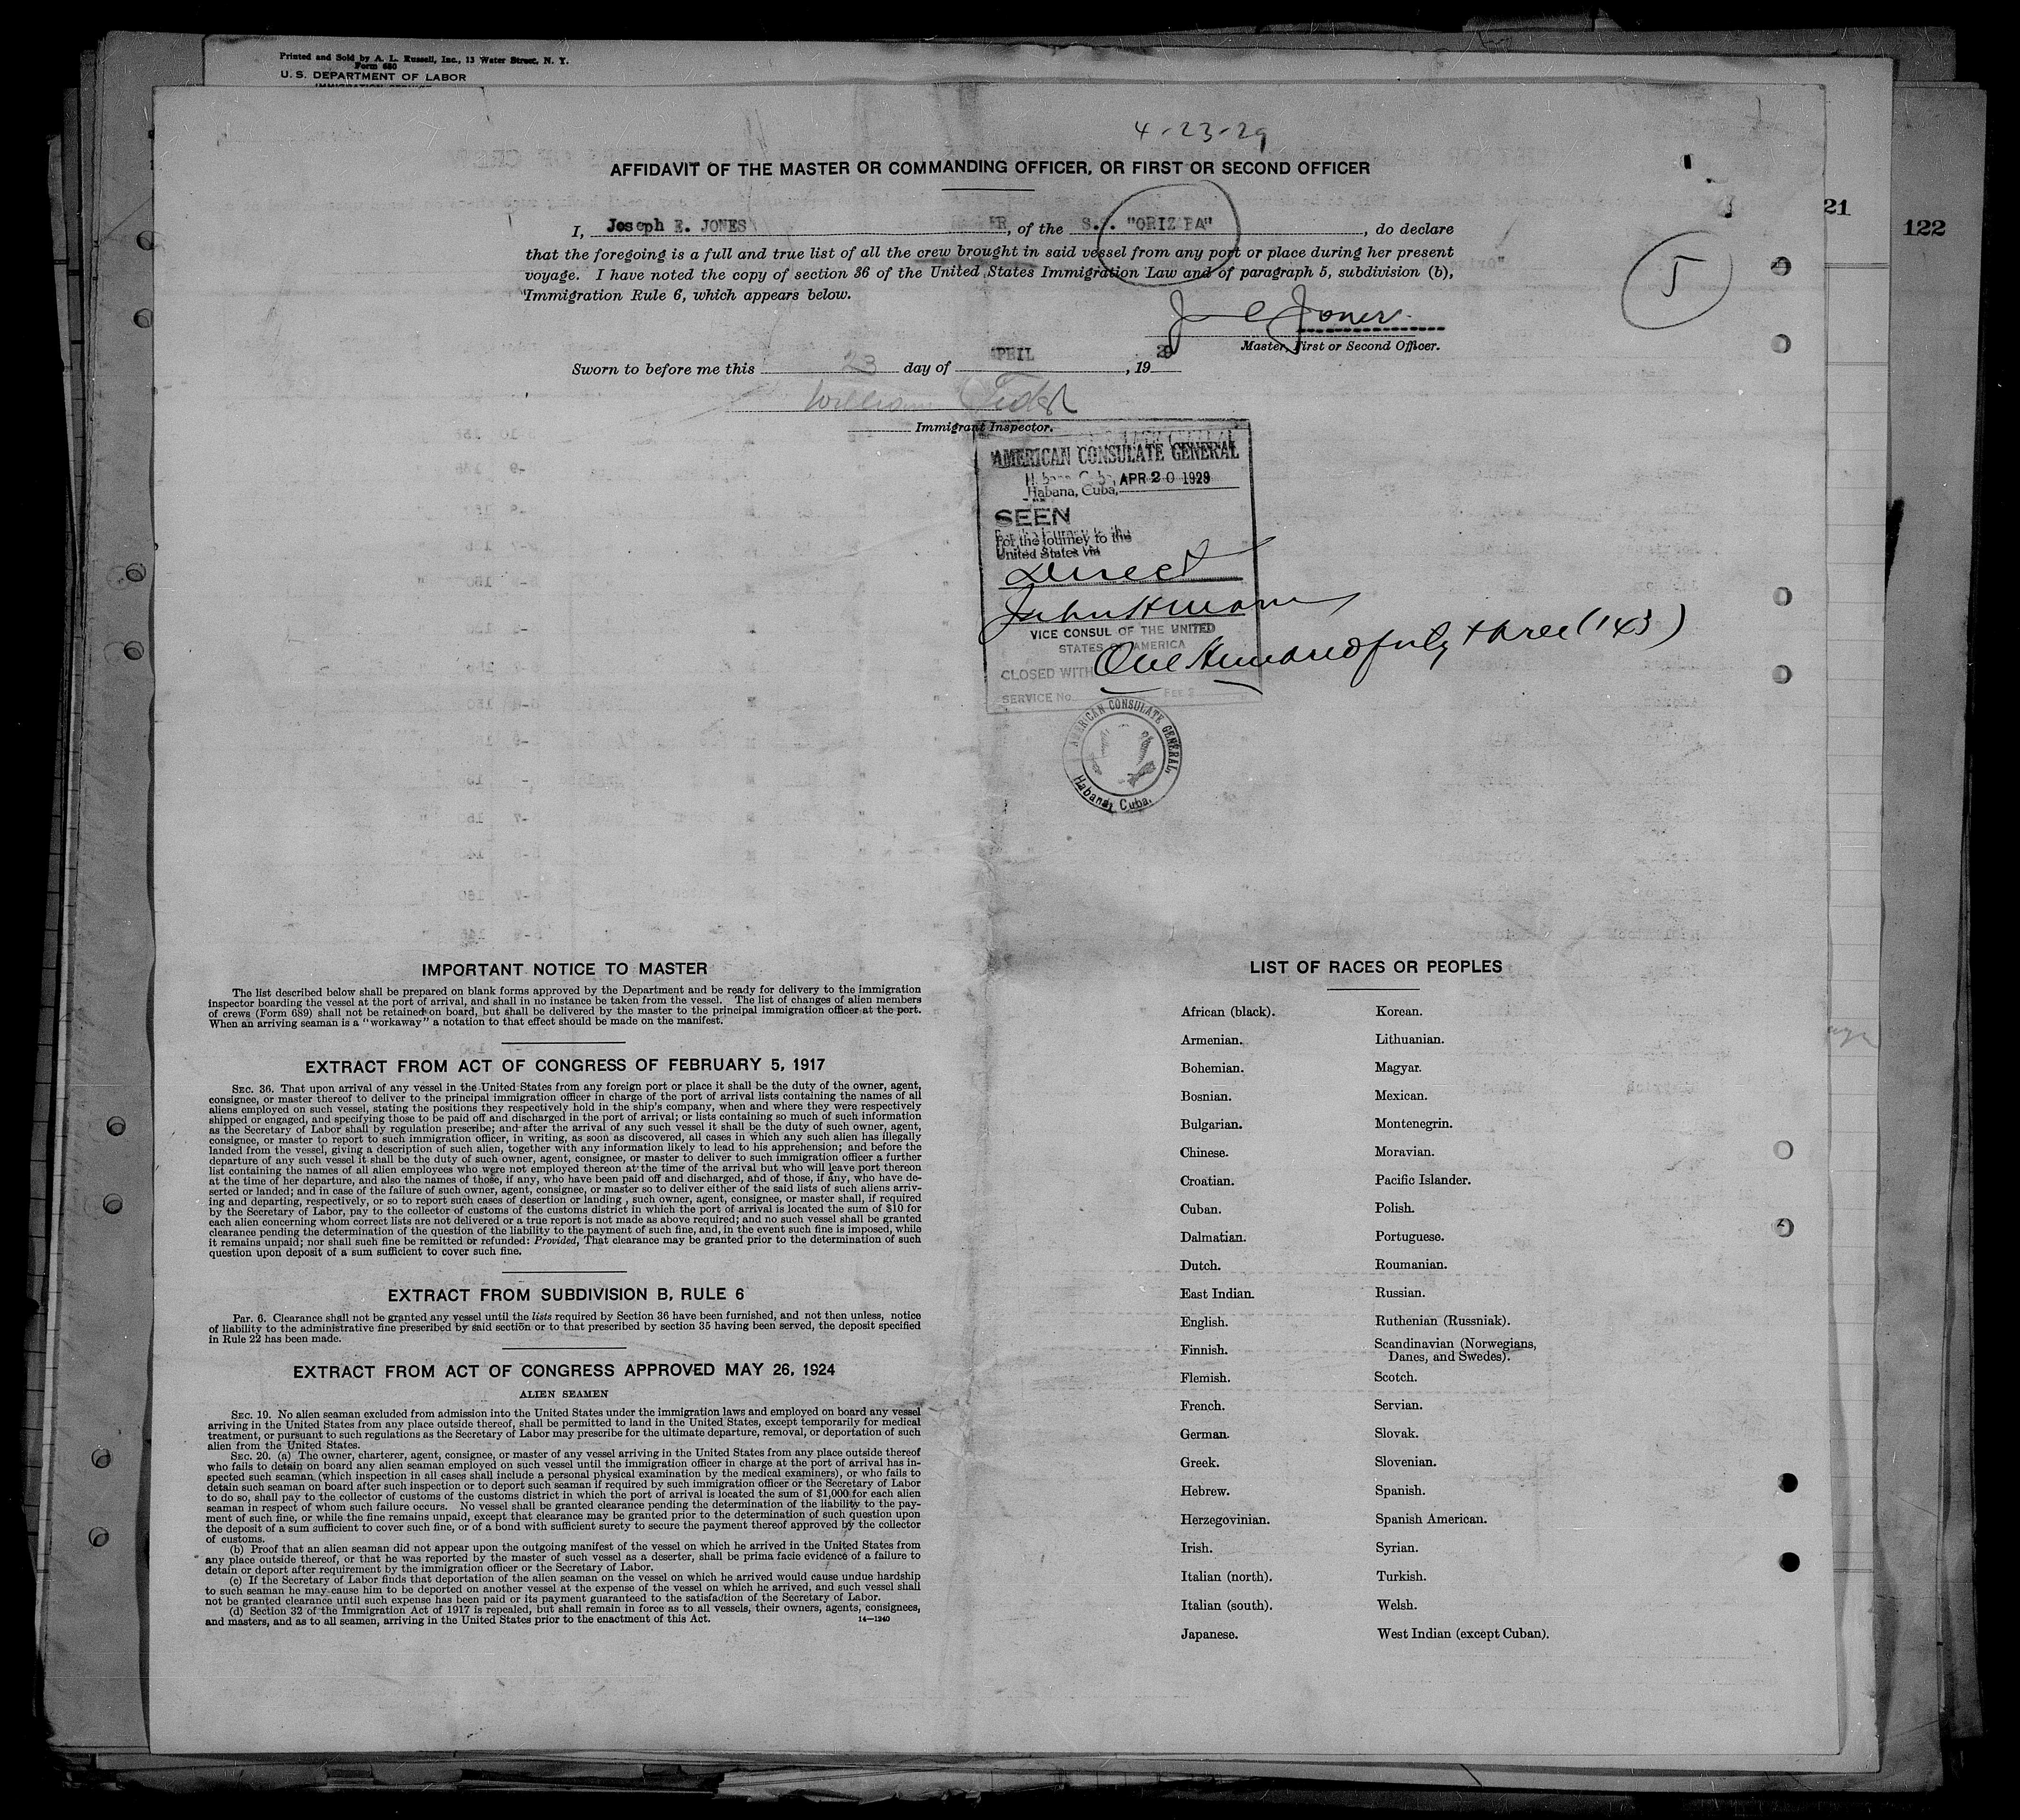 Printed and Sold by A. L. Russell, Inc., 13 Water Street, N. Y.
Form 680
U. S. DEPARTMENT OF LABOR
21
122
4-23-29
AFFIDAVIT OF THE MASTER OR COMMANDING OFFICER, OR FIRST OR SECOND OFFICER
I, Joseph E. JONES, of the S.S. "ORIZABA", do declare
that the foregoing is a full and true list of all the crew brought in said vessel from any port or place during her present
voyage. I have noted the copy of section 36 of the United States Immigration Law and of paragraph 5, subdivision (b),
Immigration Rule 6, which appears below.
J E Jones
Master, First or Second Officer.
Sworn to before me this 23 day of APRIL, 1929
William
Immigrant Inspector.
AMERICAN CONSULATE GENERAL
Habana, Cuba, APR 20 1929
SEEN
For the journey to the
United States via
Direct
VICE CONSUL OF THE UNITED
STATES OF AMERICA
One Hundred forty three (143)
CLOSED WITH
SERVICE No. FEE $
AMERICAN CONSULATE GENERAL,
Habana, Cuba.
IMPORTANT NOTICE TO MASTER
The list described below shall be prepared on blank forms approved by the Department and be ready for delivery to the immigration
inspector boarding the vessel at the port of arrival, and shall in no instance be taken from the vessel. The list of changes of alien members
of crews (Form 689) shall not be retained on board, but shall be delivered by the master to the principal immigration officer at the port.
When an arriving seaman is a "workaway" a notation to that effect should be made on the manifest.
EXTRACT FROM ACT OF CONGRESS OF FEBRUARY 5, 1917
SEC. 36. That upon arrival of any vessel in the United States from any foreign port or place it shall be the duty of the owner, agent,
consignee, or master thereof to deliver to the principal immigration officer in charge of the port of arrival lists containing the names of all
aliens employed on such vessel, stating the positions they respectively hold in the ship's company, when and where they were respectively
shipped or engaged, and specifying those to be paid off and discharged in the port of arrival; or lists containing so much of such information
as the Secretary of Labor shall by regulation prescribe; and after the arrival of any such vessel it shall be the duty of such owner, agent,
consignee, or master to report to such immigration officer, in writing, as soon as discovered, all cases in which any such alien has illegally
landed from the vessel, giving a description of such alien, together with any information likely to lead to his apprehension; and before the
departure of any such vessel it shall be the duty of such owner, agent, consignee, or master to deliver to such immigration officer a further
list containing the names of all alien employees who were not employed thereon at the time of the arrival but who will leave port thereon
at the time of her departure, and also the names of those, if any, who have been paid off and discharged, and of those, if any, who have de-
serted or landed; and in case of the failure of such owner, agent, consignee, or master so to deliver either of the said lists of such aliens arriv-
ing and departing, respectively, or so to report such cases of desertion or landing, such owner, agent, consignee, or master shall, if required
by the Secretary of Labor, pay to the collector of customs of the customs district in which the port of arrival is located the sum of $10 for
each alien concerning whom correct lists are not delivered or a true report is not made as above required; and no such vessel shall be granted
clearance pending the determination of the question of the liability to the payment of such fine, and, in the event such fine is imposed, while
it remains unpaid; nor shall such fine be remitted or refunded: Provided, That clearance may be granted prior to the determination of such
question upon deposit of a sum sufficient to cover such fine.
EXTRACT FROM SUBDIVISION B, RULE 6
Par. 6. Clearance shall not be granted any vessel until the lists required by Section 36 have been furnished, and not then unless, notice
of liability to the administrative fine prescribed by said section or to that prescribed by section 35 having been served, the deposit specified
in Rule 22 has been made.
EXTRACT FROM ACT OF CONGRESS APPROVED MAY 26, 1924
ALIEN SEAMEN
SEC. 19. No alien seaman excluded from admission into the United States under the immigration laws and employed on board any vessel
arriving in the United States from any place outside thereof, shall be permitted to land in the United States, except temporarily for medical
treatment, or pursuant to such regulations as the Secretary of Labor may prescribe for the ultimate departure, removal, or deportation of such
alien from the United States.
SEC. 20. (a) The owner, charterer, agent, consignee, or master of any vessel arriving in the United States from any place outside thereof
who fails to detain on board any alien seaman employed on such vessel until the immigration officer in charge at the port of arrival has in-
spected such seaman (which inspection in all cases shall include a personal physical examination by the medical examiners), or who fails to
detain such seaman on board after such inspection or to deport such seaman if required by such immigration officer or the Secretary of Labor
to do so, shall pay to the collector of customs of the customs district in which the port of arrival is located the sum of $1,000 for each alien
seaman in respect of whom such failure occurs. No vessel shall be granted clearance pending the determination of the liability to the pay-
ment of such fine, or while the fine remains unpaid, except that clearance may be granted prior to the determination of such question upon
the deposit of a sum sufficient to cover such fine, or of a bond with sufficient surety to secure the payment thereof approved by the collector
of customs.
(b) Proof that an alien seaman did not appear upon the outgoing manifest of the vessel on which he arrived in the United States from
any place outside thereof, or that he was reported by the master of such vessel as a deserter, shall be prima facie evidence of a failure to
detain or deport after requirement by the immigration officer or the Secretary of Labor.
(c) If the Secretary of Labor finds that deportation of the alien seaman on the vessel on which he arrived would cause undue hardship
to such seaman he may cause him to be deported on another vessel at the expense of the vessel on which he arrived, and such vessel shall
not be granted clearance until such expense has been paid or its payment guaranteed to the satisfaction of the Secretary of Labor.
(d) Section 32 of the Immigration Act of 1917 is repealed, but shall remain in force as to all vessels, their owners, agents, consignees,
and masters, and as to all seamen, arriving in the United States prior to the enactment of this Act.
14—1240
LIST OF RACES OR PEOPLES
African (black).
Armenian.
Bohemian.
Bosnian.
Bulgarian.
Chinese.
Croatian.
Cuban.
Dalmatian.
Dutch.
East Indian.
English.
Finnish.
Flemish.
French.
German.
Greek.
Hebrew.
Herzegovinian.
Irish.
Italian (north).
Italian (south).
Japanese.
Korean.
Lithuanian.
Magyar.
Mexican.
Montenegrin.
Moravian.
Pacific Islander.
Polish.
Portuguese.
Roumanian.
Russian.
Ruthenian (Russniak).
Scandinavian (Norwegians,
Danes, and Swedes).
Scotch.
Servian.
Slovak.
Slovenian.
Spanish.
Spanish American.
Syrian.
Turkish.
Welsh.
West Indian (except Cuban).